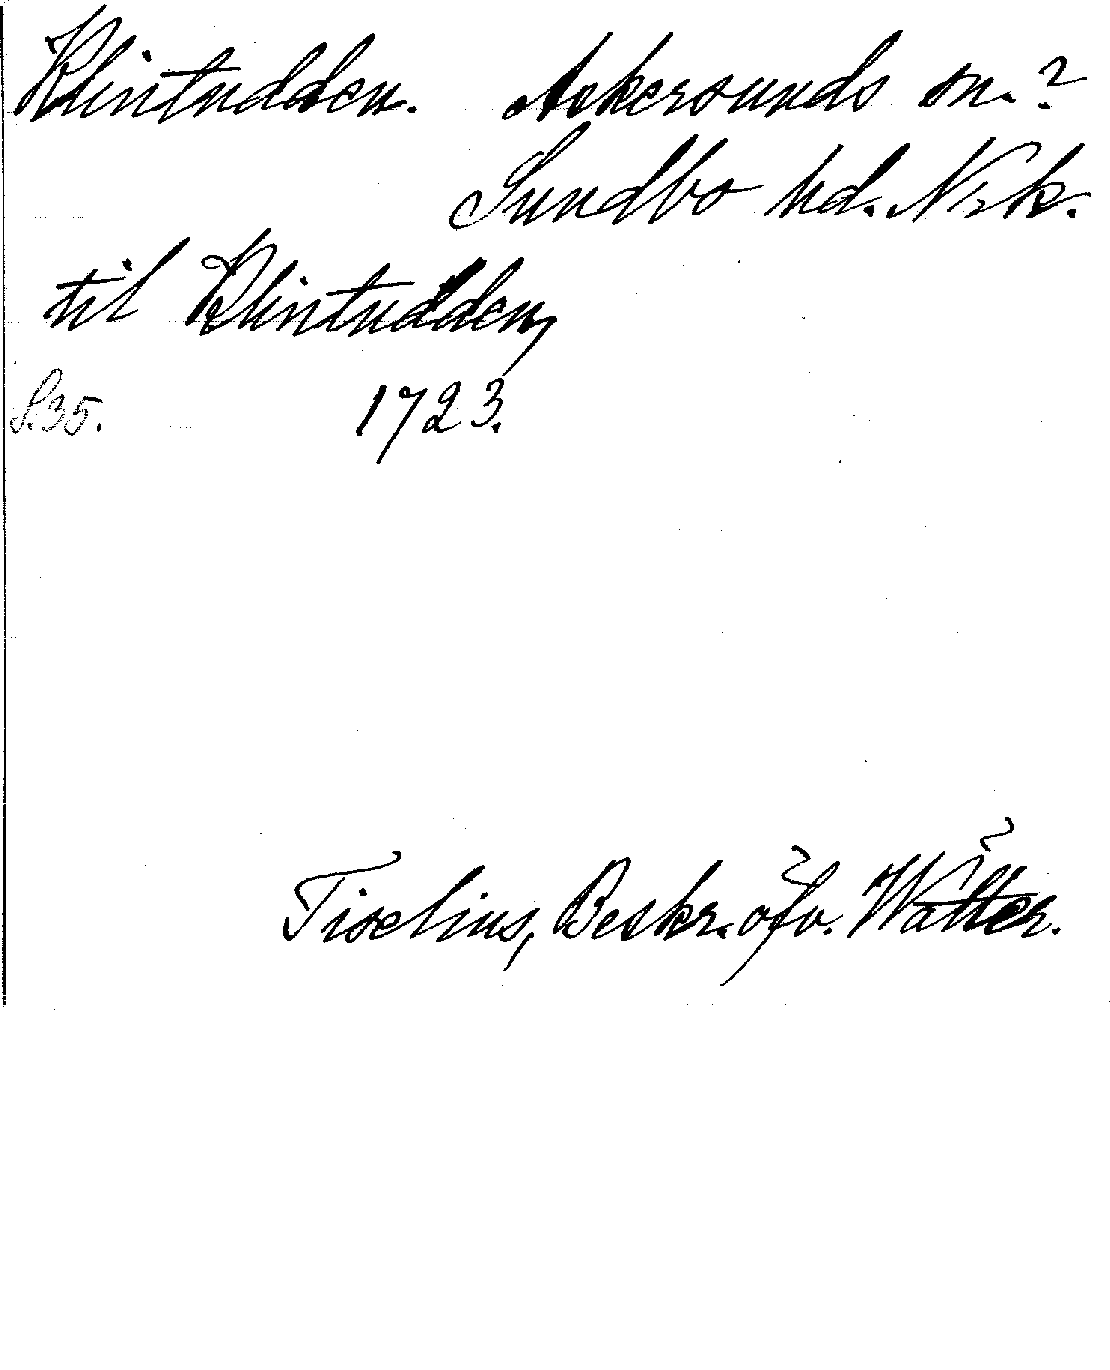 Klintudden. Askersunds sn.?
Sundbo hd. Nrk.
til Klintudden,
S. 35. 1723.
Tiselius, Beskr. öfv. Wätter.